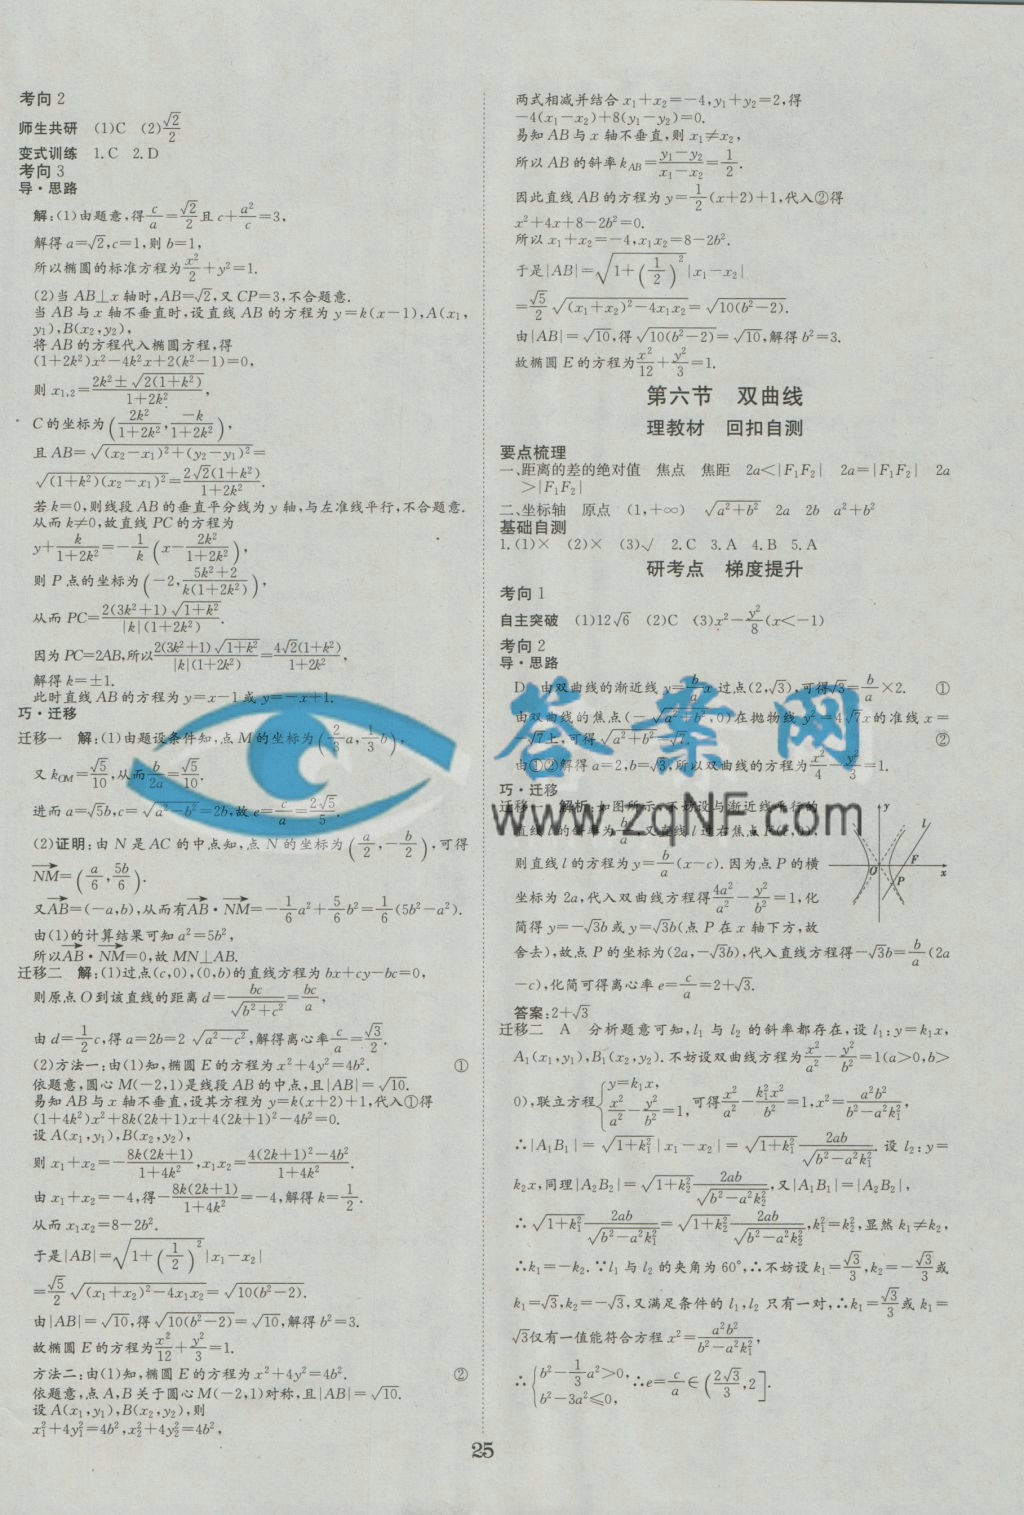 考向2
师生共研 (1)C (2)√2/2
变式训练 1.C 2.D
考向3
导·思路
解:(1)由题意,得c/a=√2/2且c+a²/c=3,
解得a=√2,c=1,则b=1,
所以椭圆的标准方程为x²/2+y²=1.
(2)当AB⊥x轴时,AB=√2,又CP=3,不合题意.
当AB与x轴不垂直时,设直线AB的方程为y=k(x-1),A(x₁,
y₁),B(x₂,y₂),
将AB的方程代入椭圆方程,得
(1+2k²)x²-4k²x+2(k²-1)=0,
则x₁,₂=(2k²±√(2(1+k²)))/(1+2k²),
C的坐标为(2k²/(1+2k²),-k/(1+2k²)),
且AB=√((x₂-x₁)²+(y₂-y₁)²)=
√((1+k²)(x₂-x₁)²)=2√2(1+k²)/(1+2k²).
若k=0,则线段AB的垂直平分线为y轴,与左准线平行,不合题意.
从而k≠0,故直线PC的方程为
y+k/(1+2k²)=-1/k(x-2k²/(1+2k²)),
则P点的坐标为(-2,(5k²+2)/(k(1+2k²))),
从而PC=2(3k²+1)√(1+k²)/(|k|(1+2k²)).
因为PC=2AB,所以2(3k²+1)√(1+k²)/(|k|(1+2k²))=4√2(1+k²)/(1+2k²),
解得k=±1.
此时直线AB的方程为y=x-1或y=-x+1.
巧·迁移
迁移一 解:(1)由题设条件知,点M的坐标为(2/3a,1/3b),
又k_OM=√5/10,从而b/2a=√5/10.
进而a=√5b,c=√(a²-b²)=2b,故e=c/a=2√5/5.
(2)证明:由N是AC的中点知,点N的坐标为(a/2,-b/2),可得
NM=(a/6,5b/6).
又AB=(-a,b),从而有AB·NM=-1/6a²+5/6b²=1/6(5b²-a²).
由(1)的计算结果可知a²=5b²,
所以AB·NM=0,故MN⊥AB.
迁移二 解:(1)过点(c,0),(0,b)的直线方程为bx+cy-bc=0,
则原点O到该直线的距离d=bc/√(b²+c²)=bc/a,
由d=1/2c,得a=2b=2√(a²-c²),解得离心率c/a=√3/2.
(2)方法一:由(1)知,椭圆E的方程为x²+4y²=4b². ①
依题意,圆心M(-2,1)是线段AB的中点,且|AB|=√10.
易知AB与x轴不垂直,设其方程为y=k(x+2)+1,代入①得
(1+4k²)x²+8k(2k+1)x+4(2k+1)²-4b²=0.
设A(x₁,y₁),B(x₂,y₂),
则x₁+x₂=-8k(2k+1)/(1+4k²),x₁x₂=(4(2k+1)²-4b²)/(1+4k²).
由x₁+x₂=-4,得-8k(2k+1)/(1+4k²)=-4,解得k=1/2.
从而x₁x₂=8-2b².
于是|AB|=√(1+(1/2)²)|x₁-x₂|
=√5/2√((x₁+x₂)²-4x₁x₂)=√(10(b²-2)).
由|AB|=√10,得√(10(b²-2))=√10,解得b²=3.
故椭圆E的方程为x²/12+y²/3=1.
方法二:由(1)知,椭圆E的方程为x²+4y²=4b². ②
依题意,点A,B关于圆心M(-2,1)对称,且|AB|=√10.
设A(x₁,y₁),B(x₂,y₂),则
x₁²+4y₁²=4b²,x₂²+4y₂²=4b²,
两式相减并结合x₁+x₂=-4,y₁+y₂=2,得
-4(x₁-x₂)+8(y₁-y₂)=0.
易知AB与x轴不垂直,则x₁≠x₂,
所以AB的斜率k_AB=(y₁-y₂)/(x₁-x₂)=1/2.
因此直线AB的方程为y=1/2(x+2)+1,代入②得
x²+4x+8-2b²=0.
所以x₁+x₂=-4,x₁x₂=8-2b².
于是|AB|=√(1+(1/2)²)|x₁-x₂|
=√5/2√((x₁+x₂)²-4x₁x₂)=√(10(b²-2)).
由|AB|=√10,得√(10(b²-2))=√10,解得b²=3.
故椭圆E的方程为x²/12+y²/3=1.
第六节 双曲线
理教材 回扣自测
要点梳理
一、距离的差的绝对值 焦点 焦距 2a<|F₁F₂| 2a=|F₁F₂| 2a
>|F₁F₂|
二、坐标轴 原点 (1,+∞) √(a²+b²) 2a 2b a²+b²
基础自测
1.(1)× (2)× (3)√ 2.C 3.A 4.B 5.A
研考点 梯度提升
考向1
自主突破 (1)12√6 (2)C (3)x²-y²/8(x<-1)
考向2
导·思路
D 由双曲线的渐近线y=b/a x过点(2,√3),可得√3=b/a×2. ①
由双曲线的焦点(-√(a²+b²),0)在抛物线y²=4√7x的准线x=
-√7上,可得√(a²+b²)=√7. ②
由①②解得a=2,b=√3,所以双曲线的方程为x²/4-y²/3=1.
巧·迁移
迁移一 解析:如图所示,不妨设与渐近线平行的
直线l的斜率为b/a,又直线l过右焦点F(c,0),
则直线l的方程为y=b/a(x-c).因为点P的横
坐标为2a,代入双曲线方程得4a²/a²-y²/b²=1,化
简得y=-√3b或y=√3b(点P在x轴下方,故
舍去),故点P的坐标为(2a,-√3b),代入直线方程得-√3b=b/a(2a
-c),化简可得离心率e=c/a=2+√3.
答案:2+√3
y
l
O
F
P
x
迁移二 A 分析题意可知,l₁与l₂的斜率都存在,设l₁:y=k₁x,
A₁(x₁,y₁),B₁(x₂,y₂).不妨设双曲线方程为x²/a²-y²/b²=1(a>0,b>
0),联立方程{y=k₁x, x²/a²-y²/b²=1,可得x²/a²-k₁²x²/b²=1,x²=a²b²/(b²-a²k₁²),
∴|A₁B₁|=√(1+k₁²)|x₁-x₂|=√(1+k₁²) 2ab/√(b²-a²k₁²).设l₂:y=
k₂x,同理|A₂B₂|=√(1+k₂²) 2ab/√(b²-a²k₂²),又|A₁B₁|=|A₂B₂|,
∴√(1+k₁²) 2ab/√(b²-a²k₁²)=√(1+k₂²) 2ab/√(b²-a²k₂²),k₁²=k₂²,显然k₁≠k₂,
∴k₁=-k₂.∵l₁与l₂的夹角为60°,∴不妨设k₁=√3/3,k₂=-√3/3或
k₁=√3,k₂=-√3,又满足条件的l₁,l₂只有一对,∴k₁=√3/3或k₁=
√3仅有一值能符合方程x²=a²b²/(b²-a²k₁²),
∴{b²-1/3a²>0, b²-3a²≤0,∴e=c/a∈(2√3/3,2].
25
答案网
www.zqNF.com